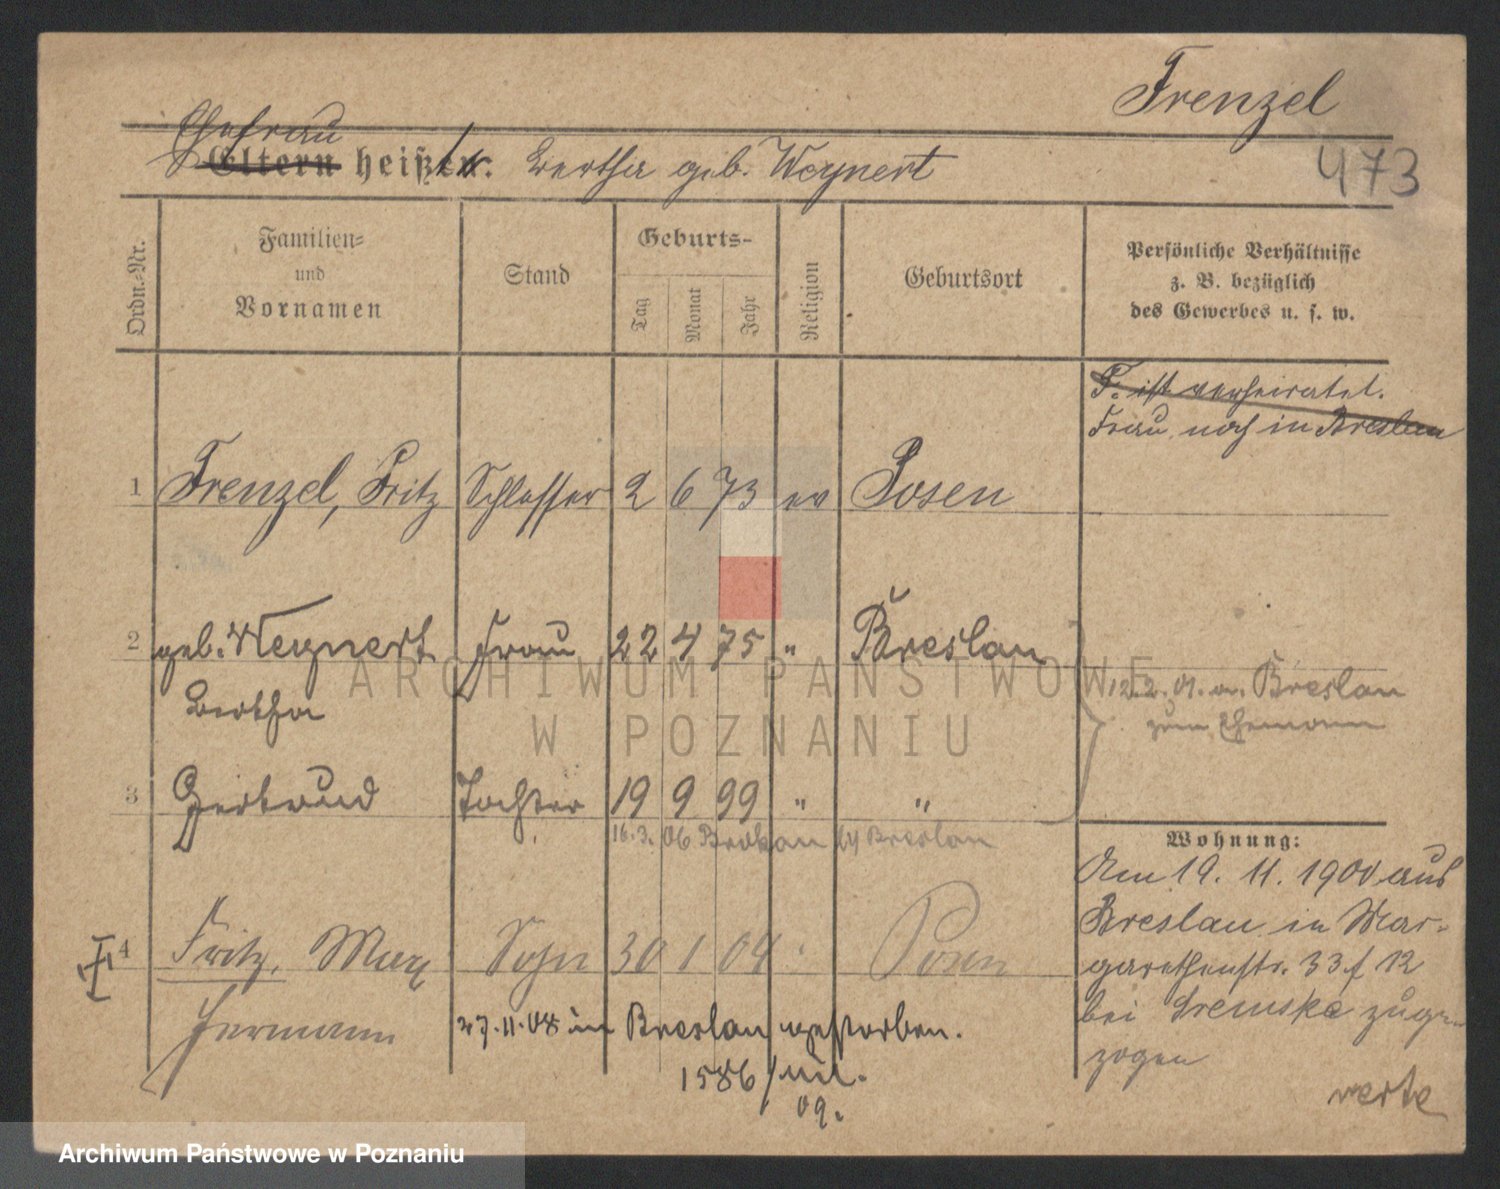 Frenzel
473
Ehefrau
Eltern heißen: Bertha geb. Weynert
Ordn.-Nr.
Familien-
und
Vornamen
Stand
Geburts-
Tag
Monat
Jahr
Religion
Geburtsort
Persönliche Verhältnisse
z. B. bezüglich
des Gewerbes u. s. w.
F. ist verheiratet.
Frau noch in Breslau
1 Frenzel, Fritz Schlosser 2 6 73 ev Posen
2 geb. Weynert Frau 22 4 75 " Breslau
Bertha
12.2.01. a. Breslau
zum Ehemann
3 Gertrud Tochter 19 9 99 " "
16.3. 06 Breslau
Wohnung:
Am 19. 11. 1900 aus
Breslau in Mar-
garethenstr. 33 f 12
bei Sremska zuge-
zogen
4 Fritz, Max Sohn 30 1 04 Posen
Hermann
27.11.08 in Breslau gestorben.
1586/
09.
verte
ARCHIWUM PAŃSTWOWE
W POZNANIU
Archiwum Państwowe w Poznaniu